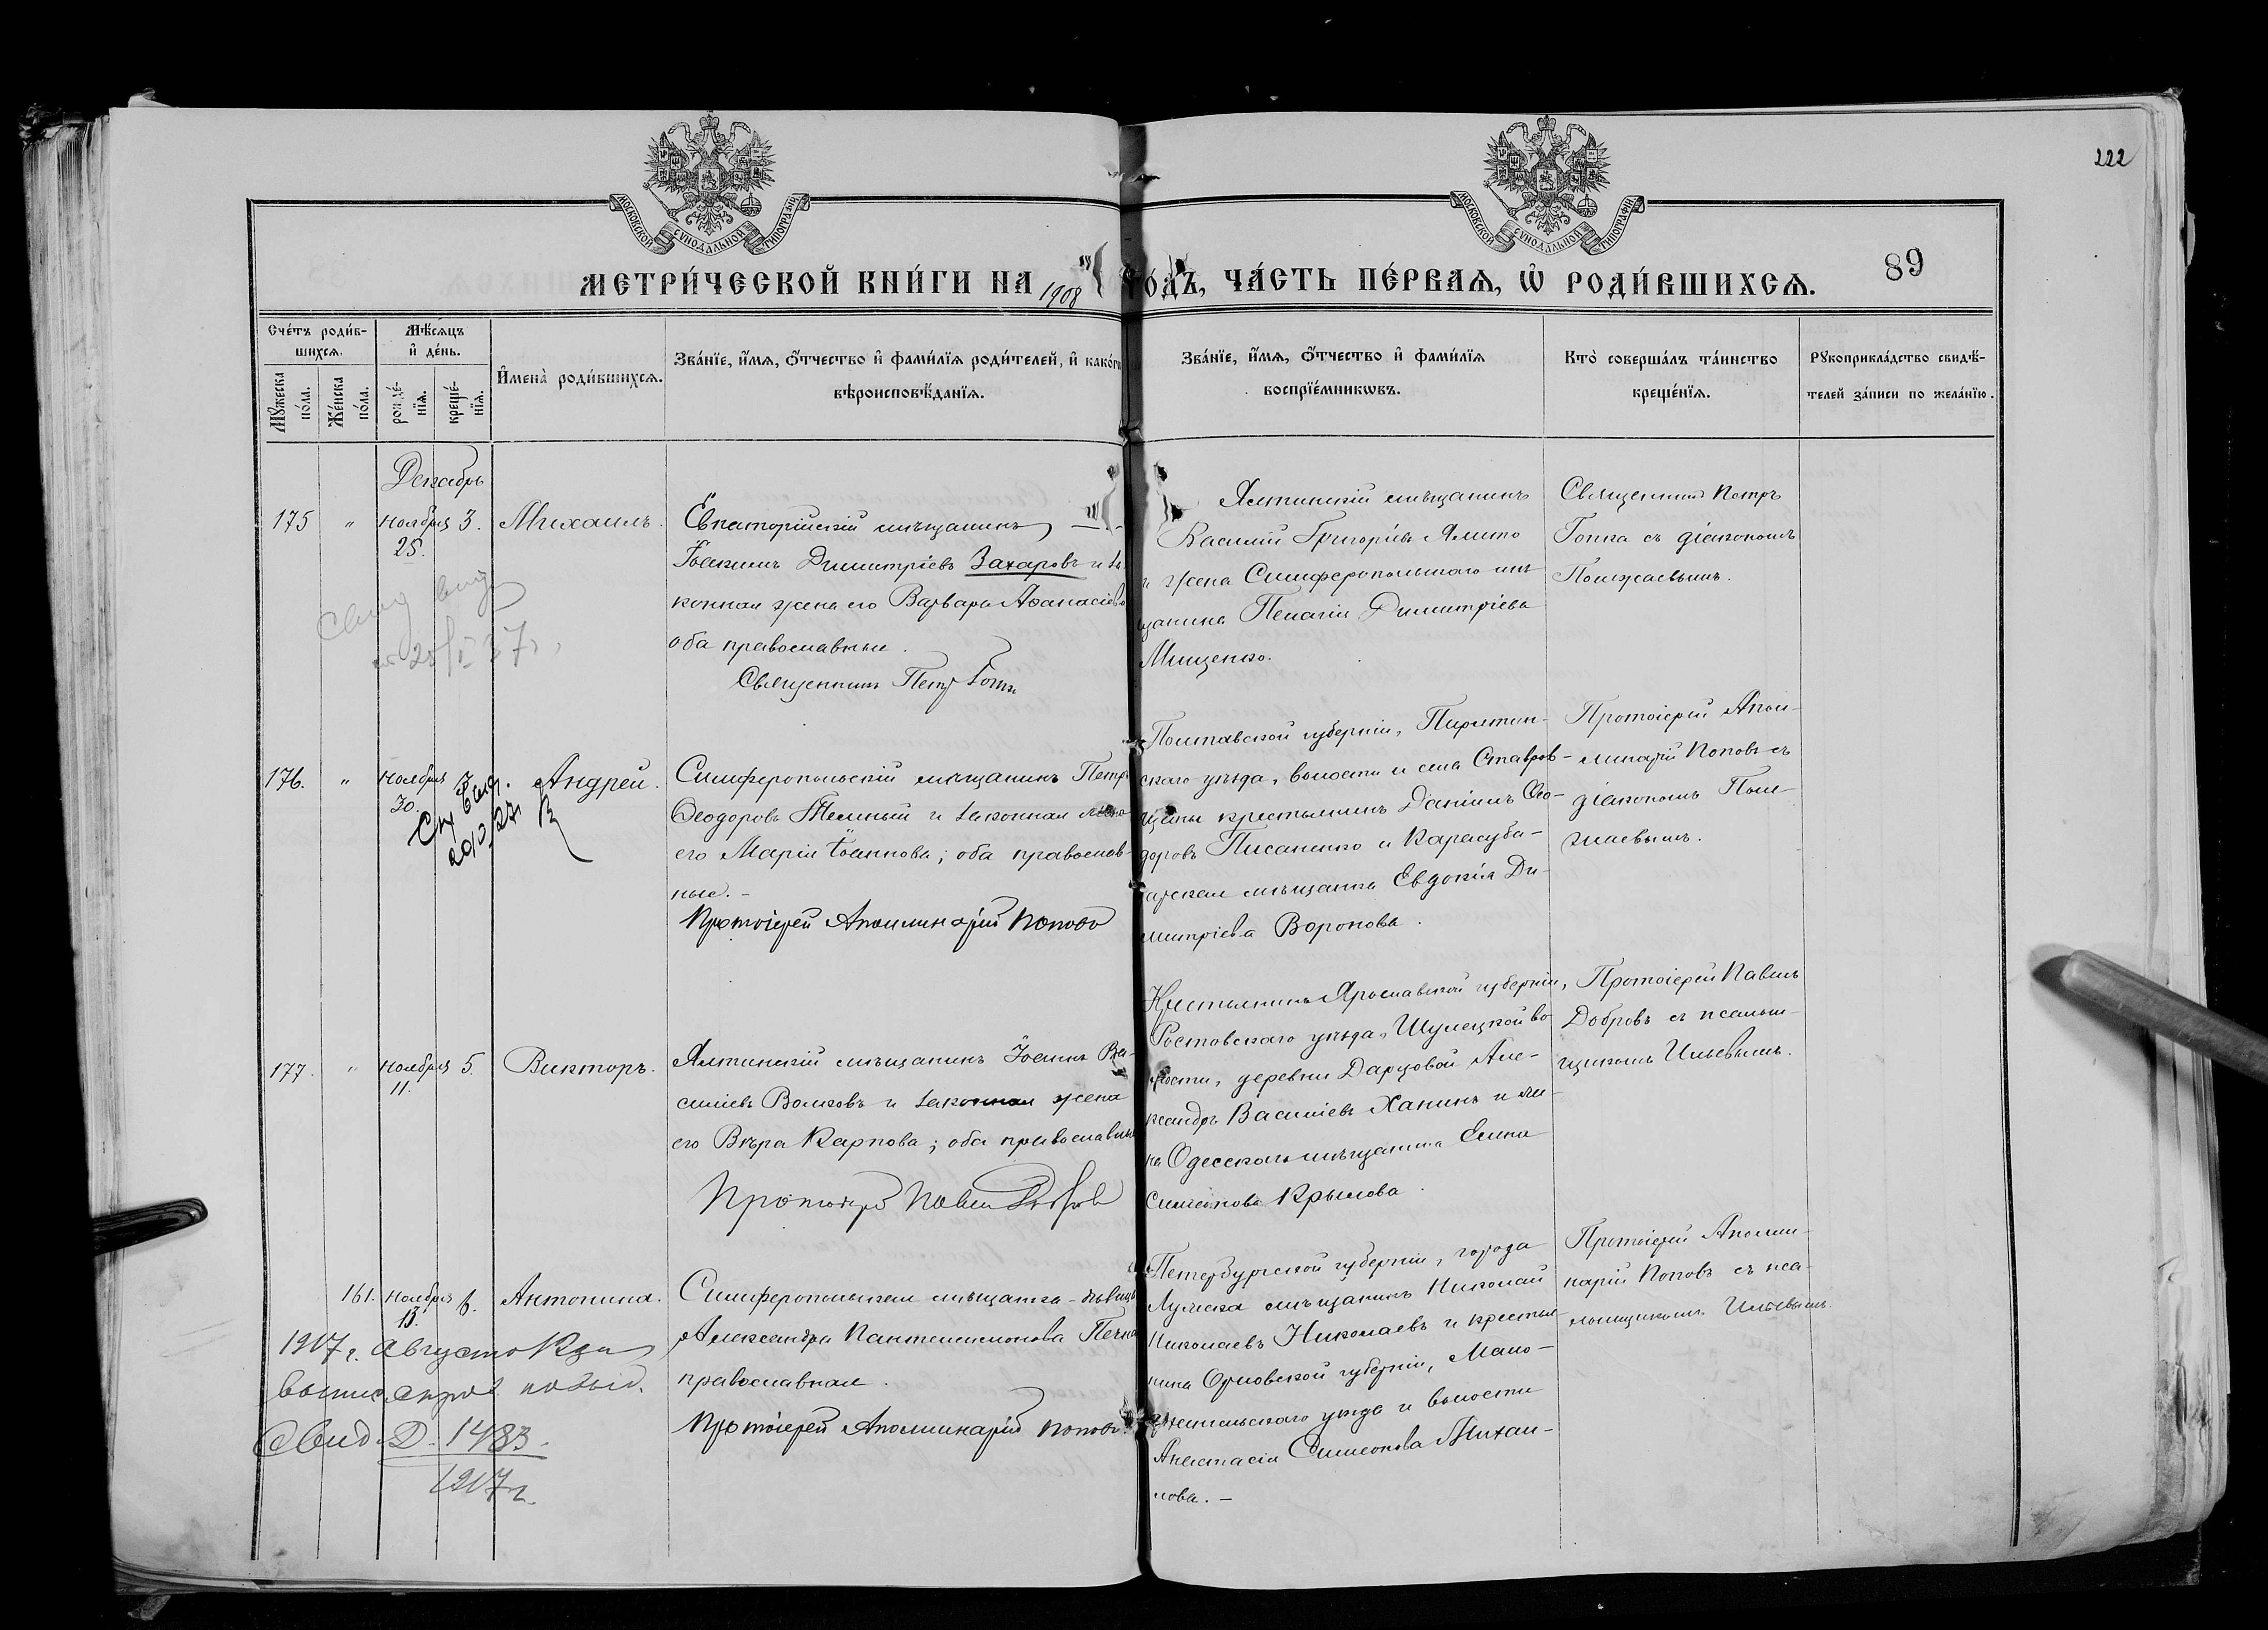 222
МОСКОВСКОЙ СѴНОДАЛЬНОЙ ТИПОГРАФІИ
МОСКОВСКОЙ СѴНОДАЛЬНОЙ ТИПОГРАФІИ
МЕТРИ́ЧЕСКОЙ КНИ́ГИ НА 1908 ГО́ДЪ, ЧА́СТЬ ПЕ́РВАѦ, Ѡ҆ РОДИ́ВШИХСѦ.
89
Сче́тъ роди́в-
шихсѧ.
Мꙋ́жеска по́ла.
Же́нска по́ла.
Мѣ́сѧцъ
и҆ де́нь.
рожде́-
нїѧ.
креще́-
нїѧ.
И҆мена̀ роди́вшихсѧ.
Зва́нїе, и҆́мѧ, ѻ҆́тчество и҆ фами́лїѧ роди́телей, и҆ како́гѡ
вѣроисповѣ́данїѧ.
Зва́нїе, и҆́мѧ, ѻ҆́тчество и҆ фами́лїѧ
воспрїе́мникѡвъ.
Кто̀ соверша́лъ та́инство
креще́нїѧ.
Рꙋкоприкла́дство свидѣ́-
телей за́писи по жела́нїю.
Декабрь
175 " Ноября 3. Михаилъ.
25.
Евпаторійскій мѣщанинъ
Іоакимъ Димитріевъ Захаровъ и за-
конная жена его Варвара Аѳанасіева
оба православные.
Священникъ Петръ Гопка
Ялтинскій мѣщанинъ
Василій Григорьевъ Ялито
и жена Симферопольскаго мѣ-
щанина Пелагія Димитріева
Мищенко.
Священникъ Петръ
Гопка съ діакономъ
176. " Ноября Андрей.
30.
Симферопольскій мѣщанинъ Петръ
Ѳеодоровъ Темный и законная жена
его Марія Іоаннова; оба православ-
ные. –
Протоіерей Аполлинарій Поповъ
Полтавской губерніи, Пирятин-
скаго уѣзда, волости и села Ставров-
щины крестьянинъ Даніилъ Ѳео-
доровъ Писаненко и Карасуба-
зарская мѣщанка Евдокія Ди-
митріева Воронова.
Протоіерей Апол-
линарій Поповъ съ
діакономъ
177. " Ноября 5. Викторъ.
11.
Ялтинскій мѣщанинъ Іоаннъ Ва-
силіевъ Волковъ и законная жена
его Вѣра Карпова; оба православные
Протоіерей Павелъ Добровъ
Крестьянинъ Ярославской губерніи,
Ростовскаго уѣзда, Шулецкой во-
лости, деревни Дарцовой Але-
ксандръ Василіевъ Ханинъ и же-
на Одесскаго мѣщанина Елена
Симеонова Крылова.
Протоіерей Павелъ
Добровъ съ псалом-
щикомъ Ильевымъ.
161. Ноября 6. Антонина.
13.
Симферопольская мѣщанка-дѣвица
Александра Пантелеимонова
православная.
Протоіерей Аполлинарій Поповъ.
Петербургской губерніи, города
Лужска мѣщанинъ Николай
Николаевъ Николаевъ и крестьян-
нина Орловской губерніи, Мало-
архангельскаго уѣзда и волости
Анастасія Симеонова Михаи-
лова. –
Протоіерей Аполли-
нарій Поповъ съ пса-
ломщикомъ Ильевымъ.
1917 г. Августа
Свид. Д. 1483.
1917 г.